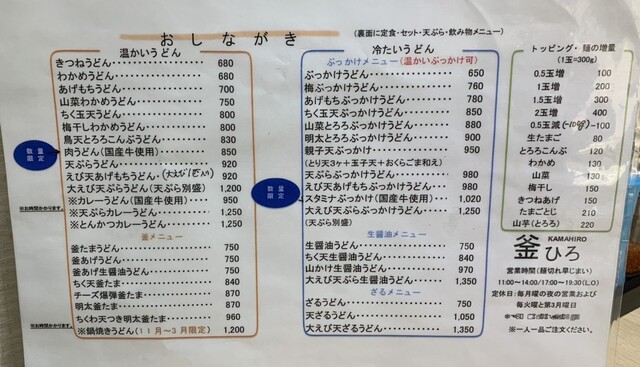 おしながき
(裏面に定食・セット・天ぷら・飲み物メニュー)
温かいうどん
きつねうどん 680
わかめうどん 680
あげもちうどん 700
山菜わかめうどん 750
ちく玉天うどん 800
梅干しわかめうどん 800
鳥天とろろこんぶうどん 830
数量限定
肉うどん(国産牛使用) 850
天ぷらうどん 920
えび天あげもちうどん 920
大えび天ぷらうどん(天ぷら別盛) 1,200
※カレーうどん(国産牛使用) 950
※お時間かかります。
※天ぷらカレーうどん 1,250
※とんかつカレーうどん 1,250
釜メニュー
釜たまうどん 750
釜あげうどん 750
釜あげ生醤油うどん 750
ちく天釜たま 840
チーズ爆弾釜たま 870
明太釜たま 870
ちくわ天つき明太釜たま 960
※お時間かかります。
※鍋焼きうどん(11月~3月限定) 1,200
冷たいうどん
ぶっかけメニュー(温かいぶっかけ可)
ぶっかけうどん 650
梅ぶっかけうどん 760
あげもちぶっかけうどん 780
ちく玉天ぶっかけうどん 850
山菜とろろぶっかけうどん 880
明太とろろぶっかけうどん 900
親子天ぶっかけ 950
(とり天3ヶ+玉子天+おくらごま和え)
天ぷらぶっかけうどん 980
えび天あげもちぶっかけうどん 980
数量限定
スタミナぶっかけ(国産牛使用) 1,020
大えび天ぷらぶっかけうどん 1,250
(天ぷら別盛)
生醤油メニュー
生醤油うどん 750
ちく天生醤油うどん 840
山かけ生醤油うどん 970
大えび天ぷら生醤油うどん 1,350
ざるメニュー
ざるうどん 750
天ざるうどん 1,050
大えび天ざるうどん 1,350
トッピング・麺の増量
(1玉=300g)
0.5玉増 100
1玉増 200
1.5玉増 300
2玉増 400
0.5玉減 -100
生たまご 80
とろろこんぶ 120
わかめ 130
山菜 130
梅干し 150
きつねあげ 150
たまごとじ 210
山芋(とろろ) 220
釜ひろ
KAMAHIRO
営業時間(麺切れ早じまい)
11:00~14:00/17:00~19:30(L.O)
定休日:毎月曜の夜の営業および
毎火曜と第3月曜日
※一人一品ご注文ください。